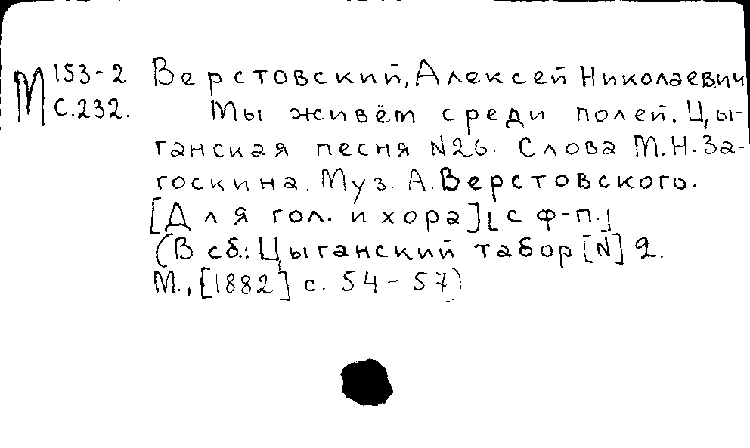 М 153-2 Верстовский, Алексей Николаевич
с. 232. Мы живём среди полей. Цы-
ганская песня №26. Слова М.Н. За-
госкина. Муз. А. Верстовского.
[Для гол. и хора] [с ф-п.]
(В сб.: Цыганский табор [N] 2.
М., [1882] с. 54-57)